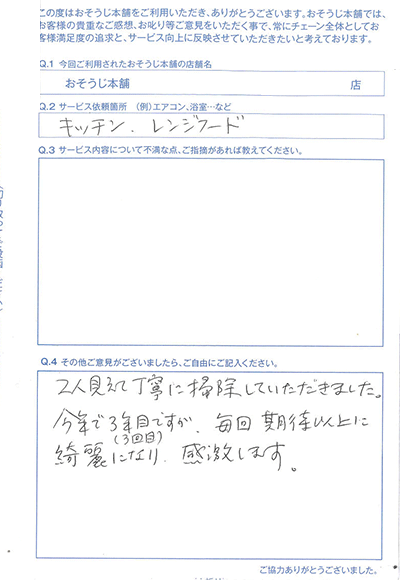 この度はおそうじ本舗をご利用いただき、ありがとうございます。おそうじ本舗では、
お客様の貴重なご感想、お叱り等ご意見をいただく事で、常にチェーン全体としてお
客様満足度の追求と、サービス向上に反映させていただきたいと考えております。
Q.1 今回ご利用されたおそうじ本舗の店舗名
おそうじ本舗 店
Q.2 サービス依頼箇所 (例)エアコン、浴室…など
キッチン、レンジフード
Q.3 サービス内容について不満な点、ご指摘があれば教えてください。
Q.4 その他ご意見がございましたら、ご自由にご記入ください。
2人見えて丁寧に掃除していただきました。
今年で3年目ですが、毎回期待以上に
(3回目)
綺麗になり、感激します。
ご協力ありがとうございました。